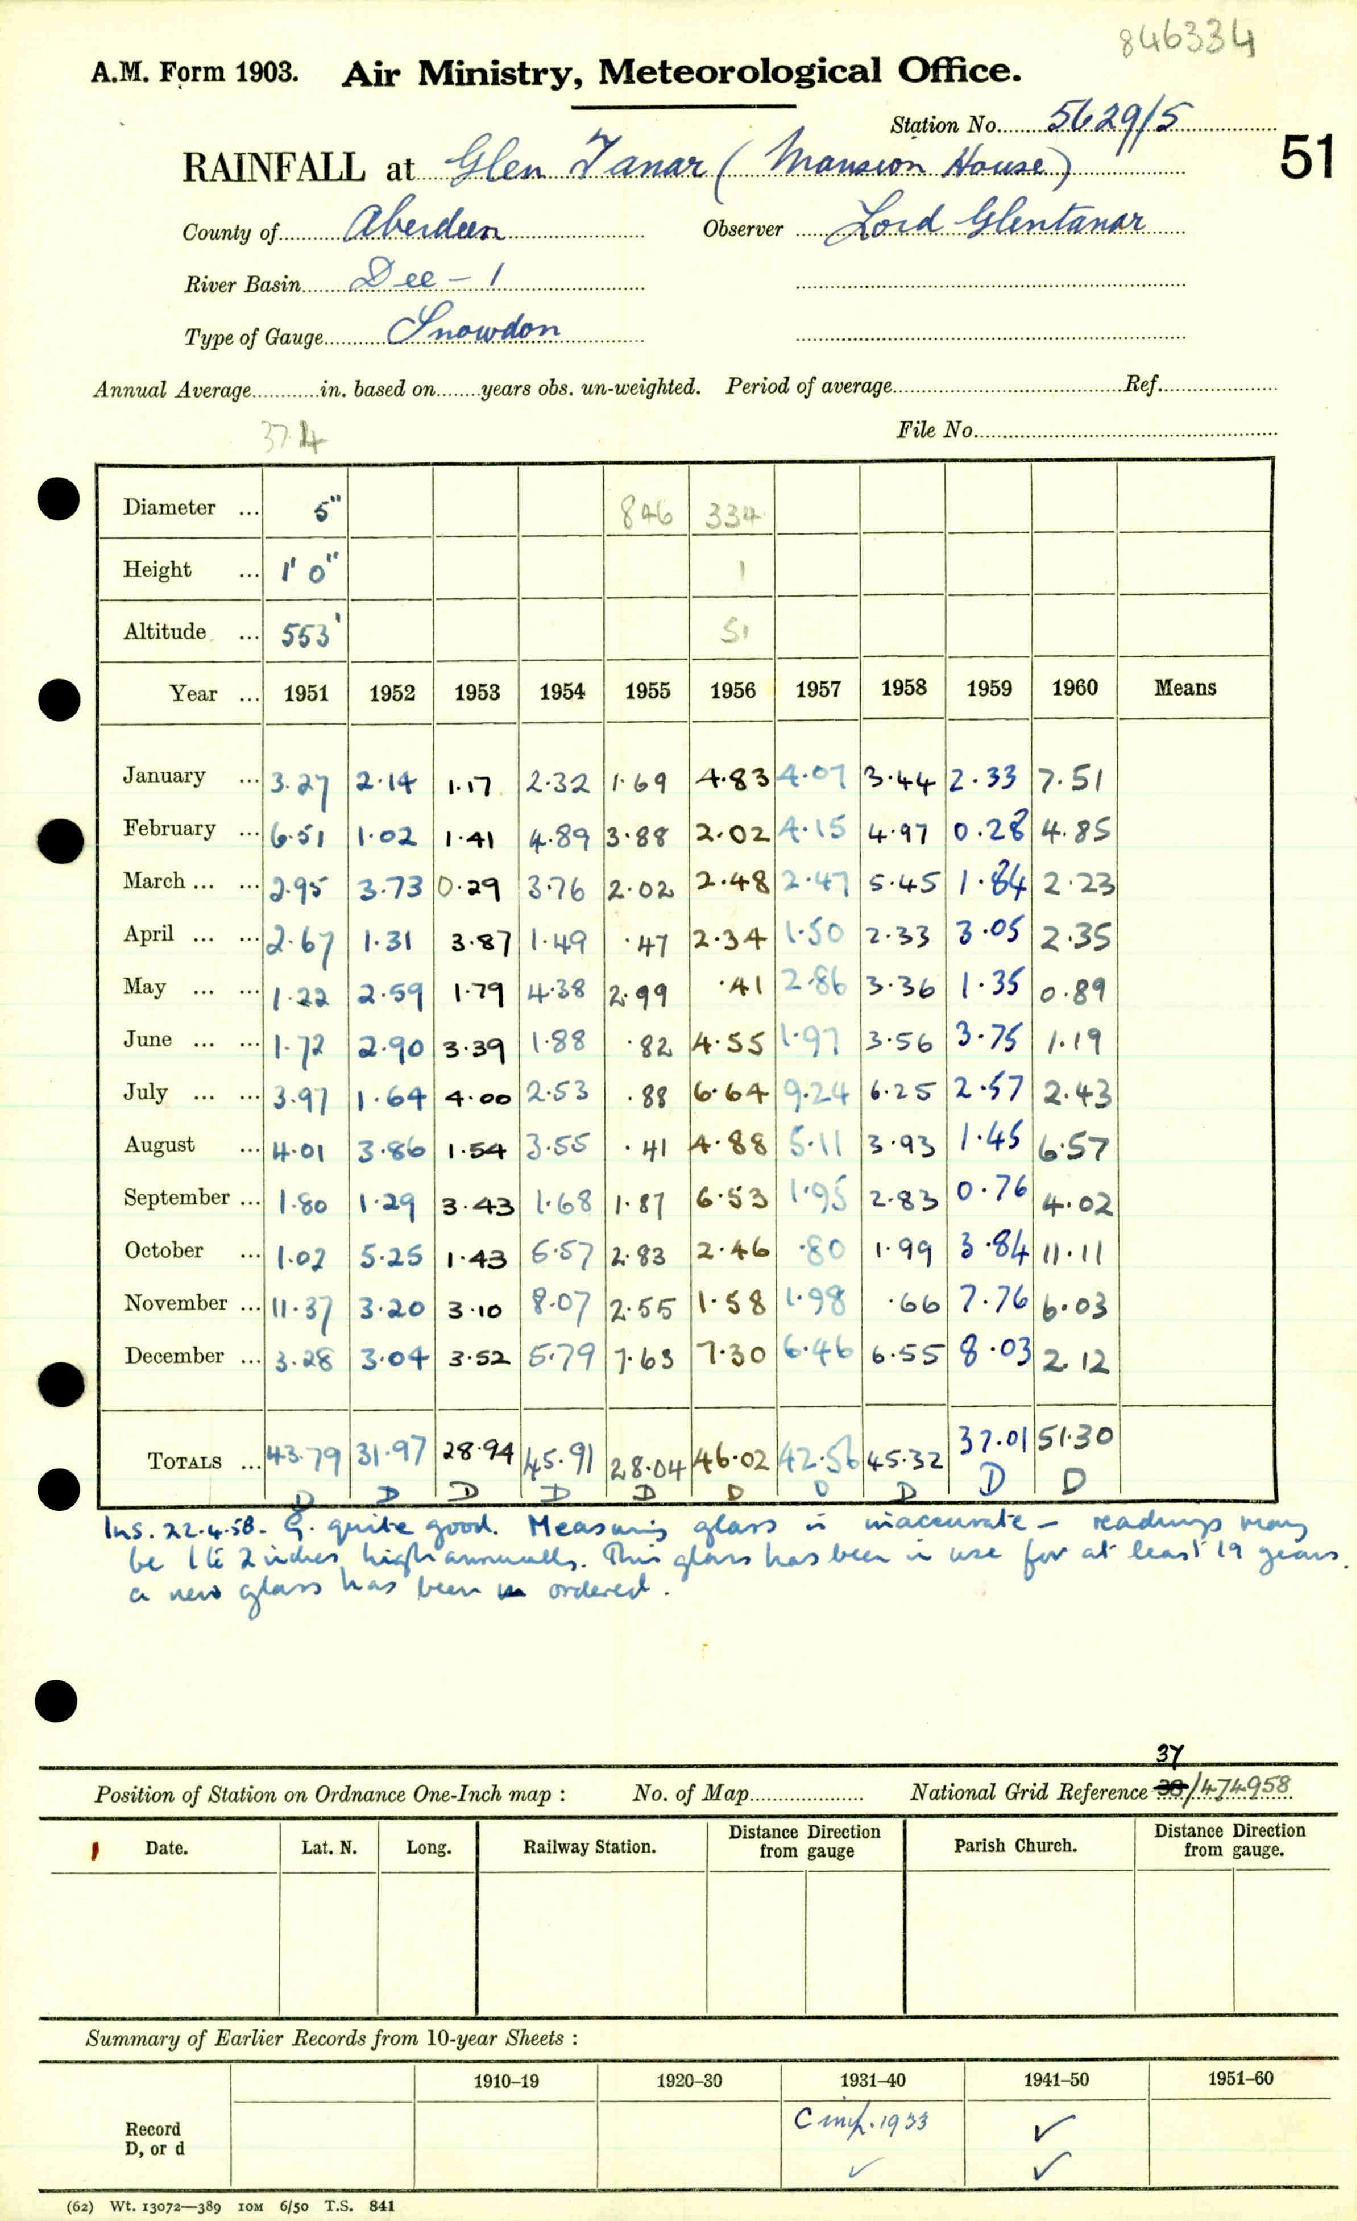 846334
A.M. Form 1903. Air Ministry, Meteorological Office.
Station No. 5629/5
51
RAINFALL at Glen Tanar (Mansion House)
County of Aberdeen Observer Lord Glentanar
River Basin Dee - 1
Type of Gauge Snowdon
Annual Average in. based on years obs. un-weighted. Period of average Ref.
37.4 File No.
Diameter ... 5" 846 334
Height ... 1' 0" 1
Altitude ... 553' 51
Year ... 1951 1952 1953 1954 1955 1956 1957 1958 1959 1960 Means
January ... 3.27 2.14 1.17 2.32 1.69 4.83 4.07 3.44 2.33 7.51
February ... 6.51 1.02 1.41 4.89 3.88 2.02 4.15 4.97 0.28 4.85
March ... ... 2.95 3.73 0.29 3.76 2.02 2.48 2.47 5.45 1.84 2.23
April ... ... 2.67 1.31 3.87 1.49 .47 2.34 1.50 2.33 3.05 2.35
May ... ... 1.22 2.59 1.79 4.38 2.99 .41 2.86 3.36 1.35 0.89
June ... ... 1.72 2.90 3.39 1.88 .82 4.55 1.97 3.56 3.75 1.19
July ... ... 3.97 1.64 4.00 2.53 .88 6.64 9.24 6.25 2.57 2.43
August ... 4.01 3.86 1.54 3.55 .41 4.88 5.11 3.93 1.45 6.57
September ... 1.80 1.29 3.43 1.68 1.87 6.53 1.95 2.83 0.76 4.02
October ... 1.02 5.25 1.43 5.57 2.83 2.46 .80 1.99 3.84 11.11
November ... 11.37 3.20 3.10 8.07 2.55 1.58 1.98 .66 7.76 6.03
December ... 3.28 3.04 3.52 5.79 7.63 7.30 6.46 6.55 8.03 2.12
TOTALS ... 43.79 31.97 28.94 45.91 28.04 46.02 42.56 45.32 37.01 51.30
D D D D D D D D D D
Ins. 22.4.58. G. quite good. Measuring glass is inaccurate - readings may
be 1 to 2 inches high annually. This glass has been in use for at least 19 years.
a new glass has been ordered.
37
Position of Station on Ordnance One-Inch map : No. of Map National Grid Reference 38/474958
Date. Lat. N. Long. Railway Station. Distance from gauge Direction Parish Church. Distance from gauge. Direction
Summary of Earlier Records from 10-year Sheets :
1910–19 1920–30 1931–40 1941–50 1951–60
Record C inf. 1933 ✓
D, or d ✓ ✓
(62) Wt. 13072—389 10M 6/50 T.S. 841